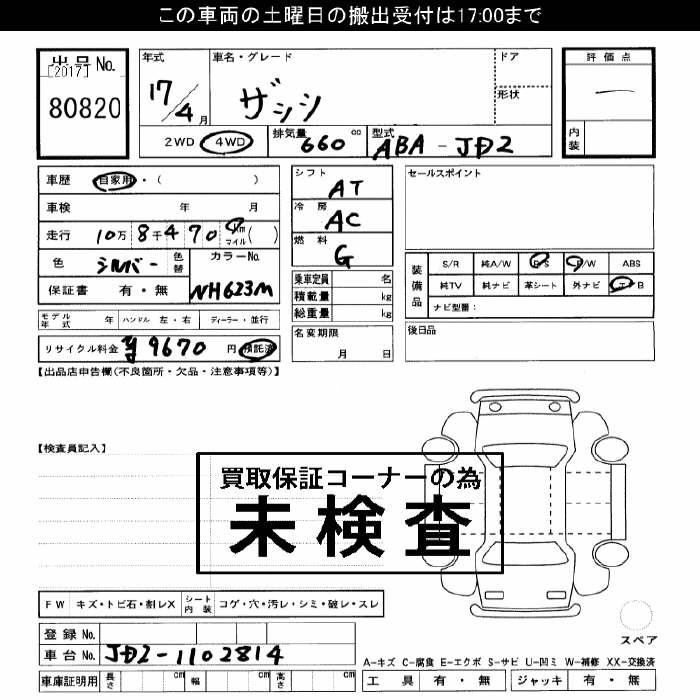 この車両の土曜日の搬出受付は17:00まで
出品No.
[2017]
80820
年式
17/4月
車名・グレード
ザッツ
ドア
形状
評価点
内装
2WD 4WD
排気量 660 cc
型式 ABA-JD2
車歴 自家用・( )
車検 年 月
走行 10万 8千 4 7 0 km マイル ( )
色 シルバー 色替
カラーNo. NH623M
保証書 有・無
モデル年式 年 ハンドル 左・右 ディーラー・並行
リサイクル料金 ¥9670 円 預託済
シフト AT
冷房 AC
燃料 G
乗車定員 名
積載量 kg
総重量 kg
名変期限
月 日
セールスポイント
装備品
S/R 純A/W P/S P/W ABS
純TV 純ナビ 革シート 外ナビ エアB
ナビ型番:
後日品
【出品店申告欄(不良箇所・欠品・注意事項等)】
【検査員記入】
買取保証コーナーの為
未検査
FW キズ・トビ石・割レX シート内装 コゲ・穴・汚レ・シミ・破レ・スレ
登録No.
車台No. JD2-1102814
車庫証明用 長さ cm 幅 cm 高さ cm
スペア
A-キズ C-腐食 E-エクボ S-サビ U-凹ミ W-補修 XX-交換済
工具 有・無 ジャッキ 有・無